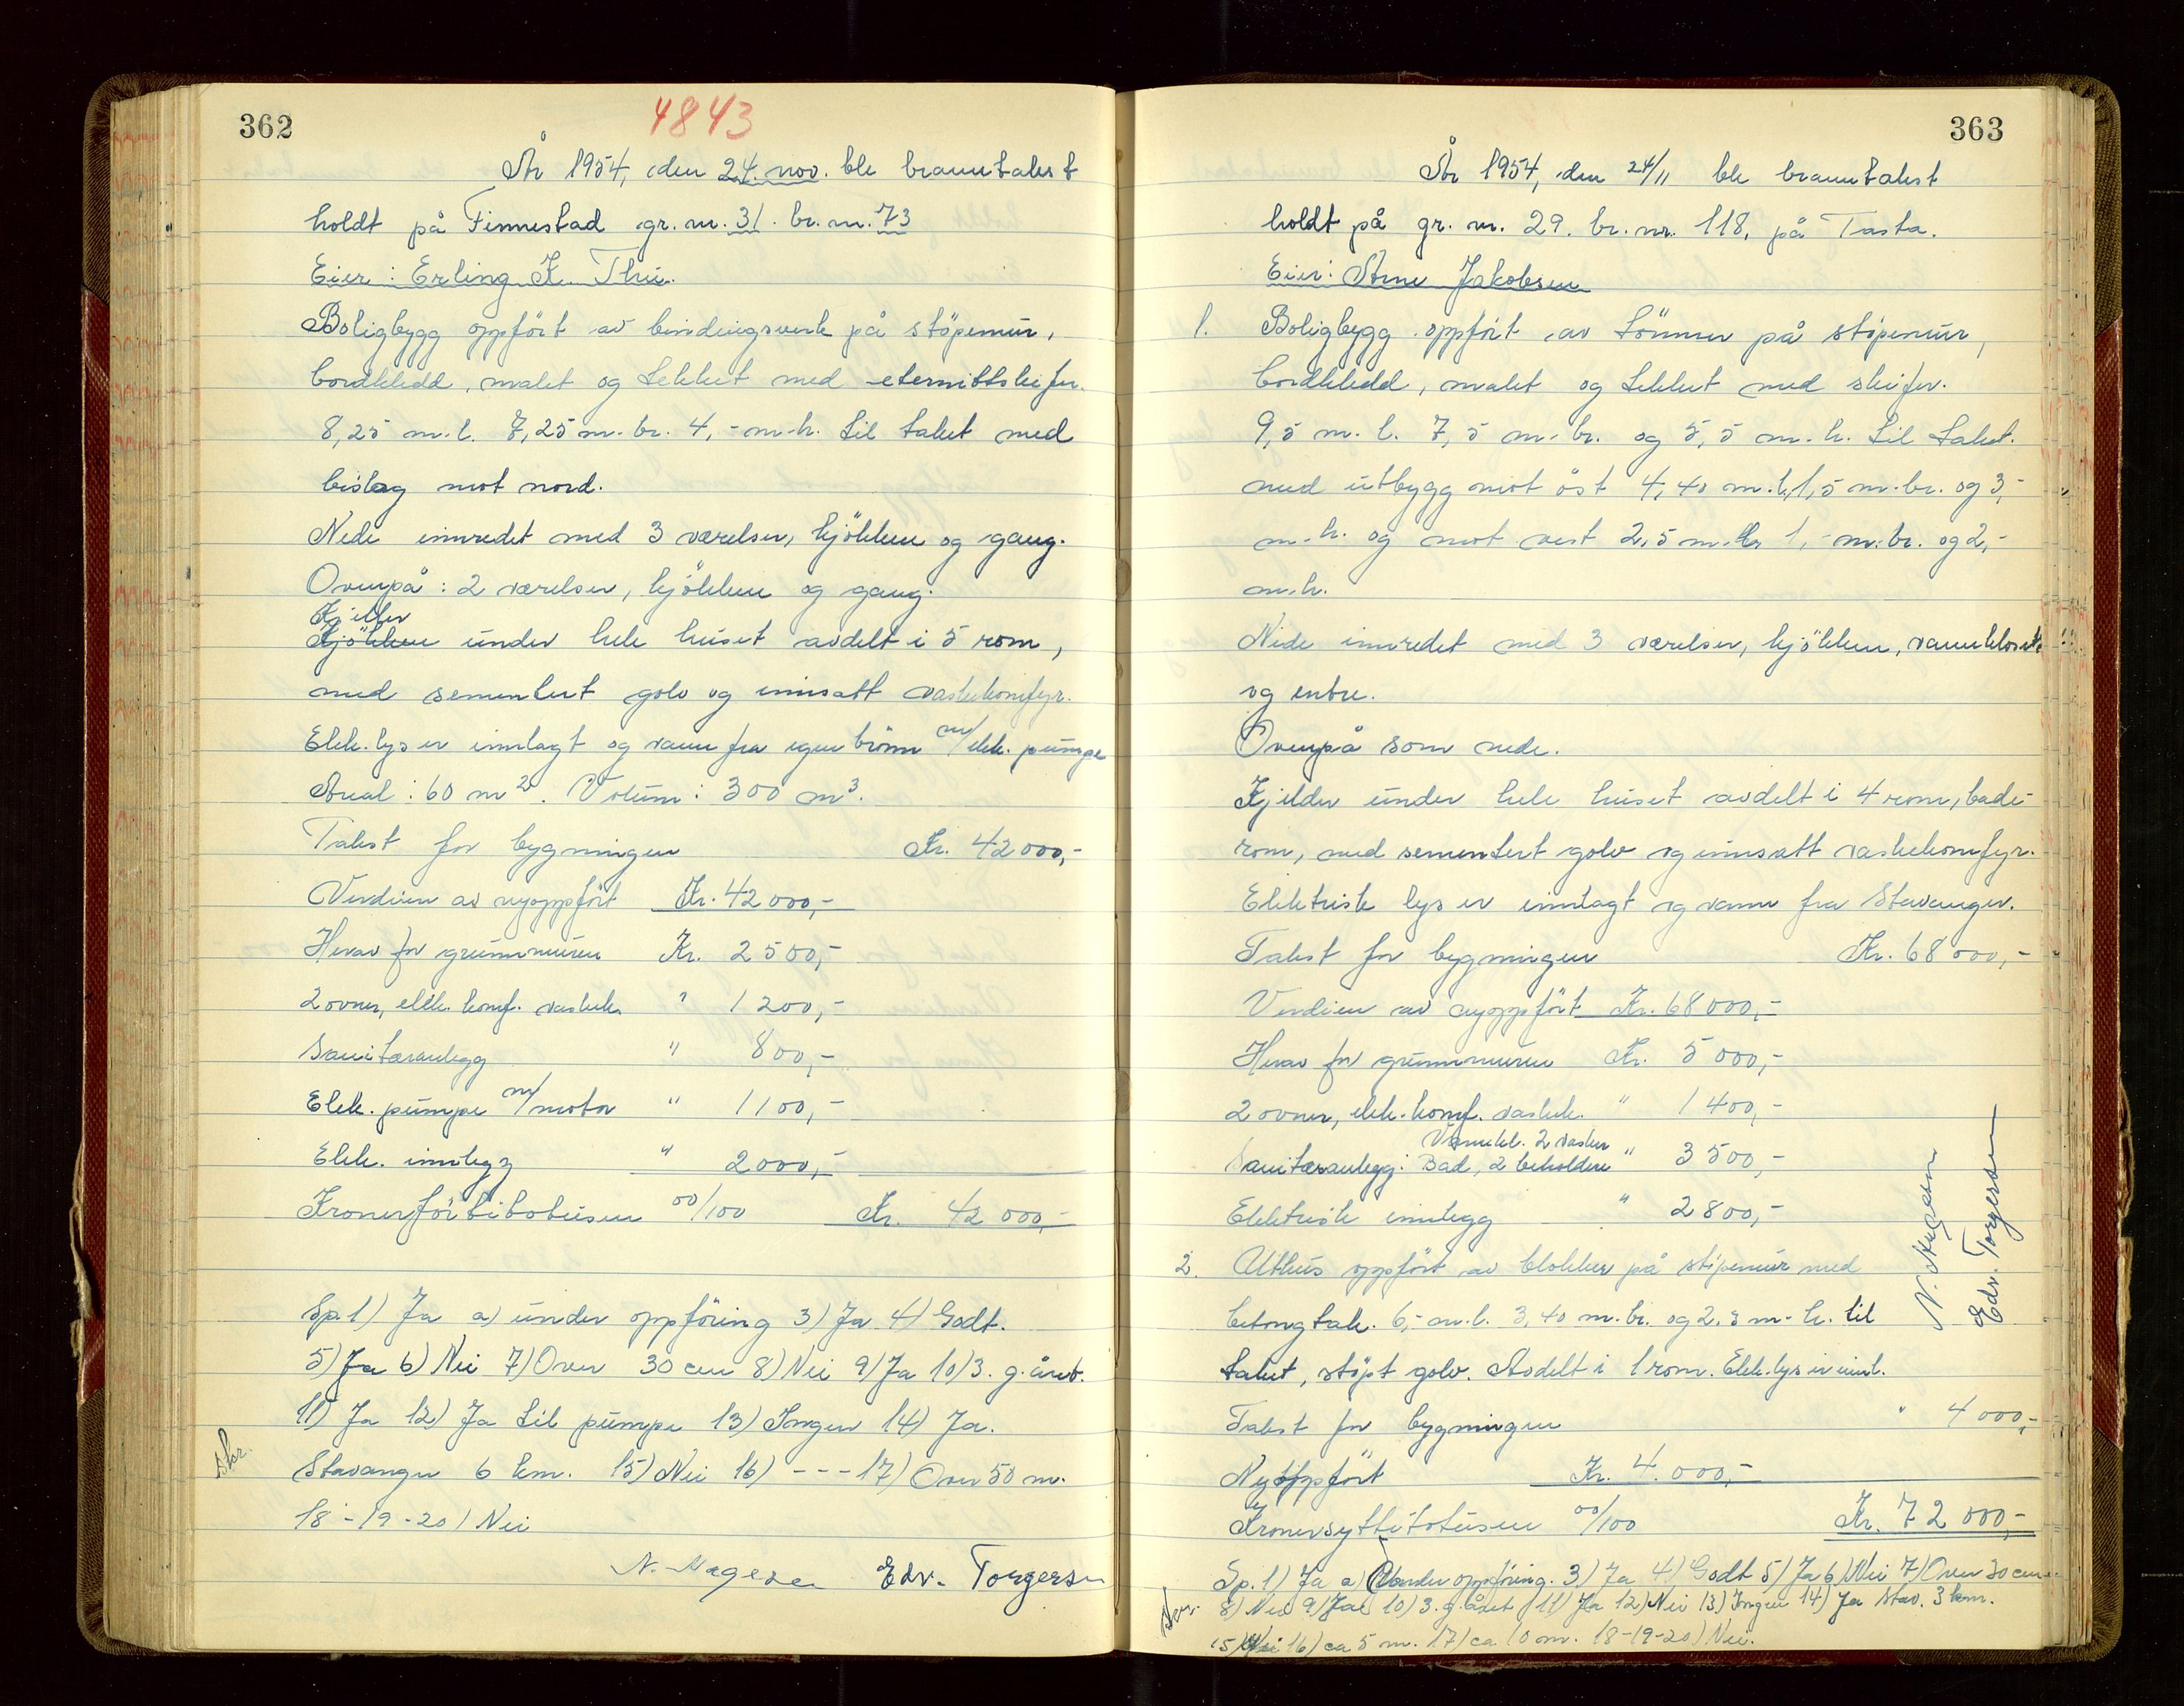 362
4843
År 1954, den 24. nov. ble branntakst
holdt på Finnestad gr. nr. 31. br. nr. 73
Eier: Erling K. Thu.
Boligbygg oppfört av bindingsverk på stöpemur,
bordkledd, malet og tekket med eternittskifer.
8,25 m. l. 7,25 m. br. 4,- m. h. til taket med
bislag mot nord.
Nede innredet med 3 værelser, kjökken og gang.
Ovenpå: 2 værelser, kjökken og gang.
Kjeller
Kjökken under hele huset avdelt i 5 rom,
med sementert golv og innsatt vaskekomfyr.
Elek. lys er innlagt og vann fra egen brönn m/elek. pumpe
Areal: 60 m². Volum: 300 m³.
Takst for bygningen Kr. 42000,-
Verdien av nyoppfört Kr. 42000,-
Herav for grunnmuren Kr. 2500,-
2 ovner, elek. komf. vaskek. " 1200,-
Sanitæranlegg " 800,-
Elek. pumpe m/motor " 1100,-
Elek. innlegg " 2000,-
Kronerförtitotusen 00/100 Kr. 42000,-
Sp. 1) Ja a) under oppföring 3) Ja 4) Godt.
5) Ja 6) Nei 7) Over 30 cm 8) Nei 9) Ja 10) 3. g. året.
11) Ja 12) Ja til pumpe 13) Ingen 14) Ja.
Skr.
Stavanger 6 km. 15) Nei 16) --- 17) Over 50 m.
18-19-20) Nei
N. Edv. Torgersen
363
År 1954, den 24/11 ble branntakst
holdt på gr. nr. 29. br. nr. 118, på Tasta.
Eier: Arne Jakobsen
1. Boligbygg oppfört av tömmer på stöpemur,
bordkledd, malet og tekket med skifer.
9,5 m. l. 7,5 m. br. og 5,5 m. h. til taket.
med utbygg mot öst 4,40 m. l. 1,5 m. br. og 3,-
m. h. og mot vest 2,5 m. l. 1,- m. br. og 2,-
m. h.
Nede innredet med 3 værelser, kjökken, vannklosett
og entre.
Ovenpå som nede.
Kjelder under hele huset avdelt i 4 rom, bade-
rom, med sementert golv og innsatt vaskekomfyr.
Elektrisk lys er innlagt og vann fra Stavanger.
Takst for bygningen Kr. 68000,-
Verdien av nyoppfört Kr. 68000,-
Herav for grunnmuren Kr. 5000,-
2 ovner, elek. komf. vaskek. " 1400,-
Vannkl. 2 vasker
Sanitæranlegg: Bad, 2 beholdere " 3500,-
Elektrisk innlegg " 2800,-
2. Uthus oppfört av blokker på stöpemur med
betongtak. 6,- m. l. 3,40 m. br. og 2,3 m. h. til
taket, stöpt golv. Avdelt i 1 rom. Elek. lys er innl.
Takst for bygningen " 4000,-
Nyoppfört Kr. 4.000,-
Kronersyttitotusen 00/100 Kr. 72000,-
Sp. 1) Ja a) Under oppföring. 3) Ja 4) Godt 5) Ja 6) Nei 7) Over 30 cm.
8) Nei 9) Ja 10) 3. g. året 11) Ja 12) Nei 13) Ingen 14) Ja Stav. 3 km.
15) Nei 16) ca 5 m. 17) ca 10 m. 18-19-20) Nei.
Edv. Torgersen